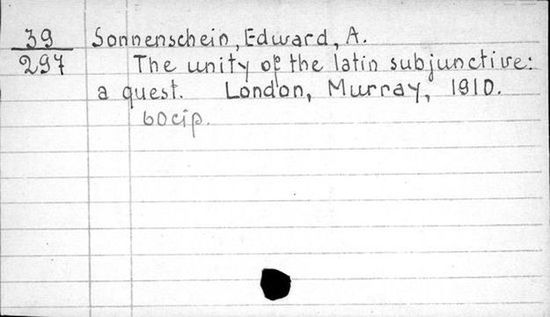 39 Sonnenschein, Edward, A.
297 The unity of the latin subjunctive:
a quest. London, Murray, 1910.
60 cip.